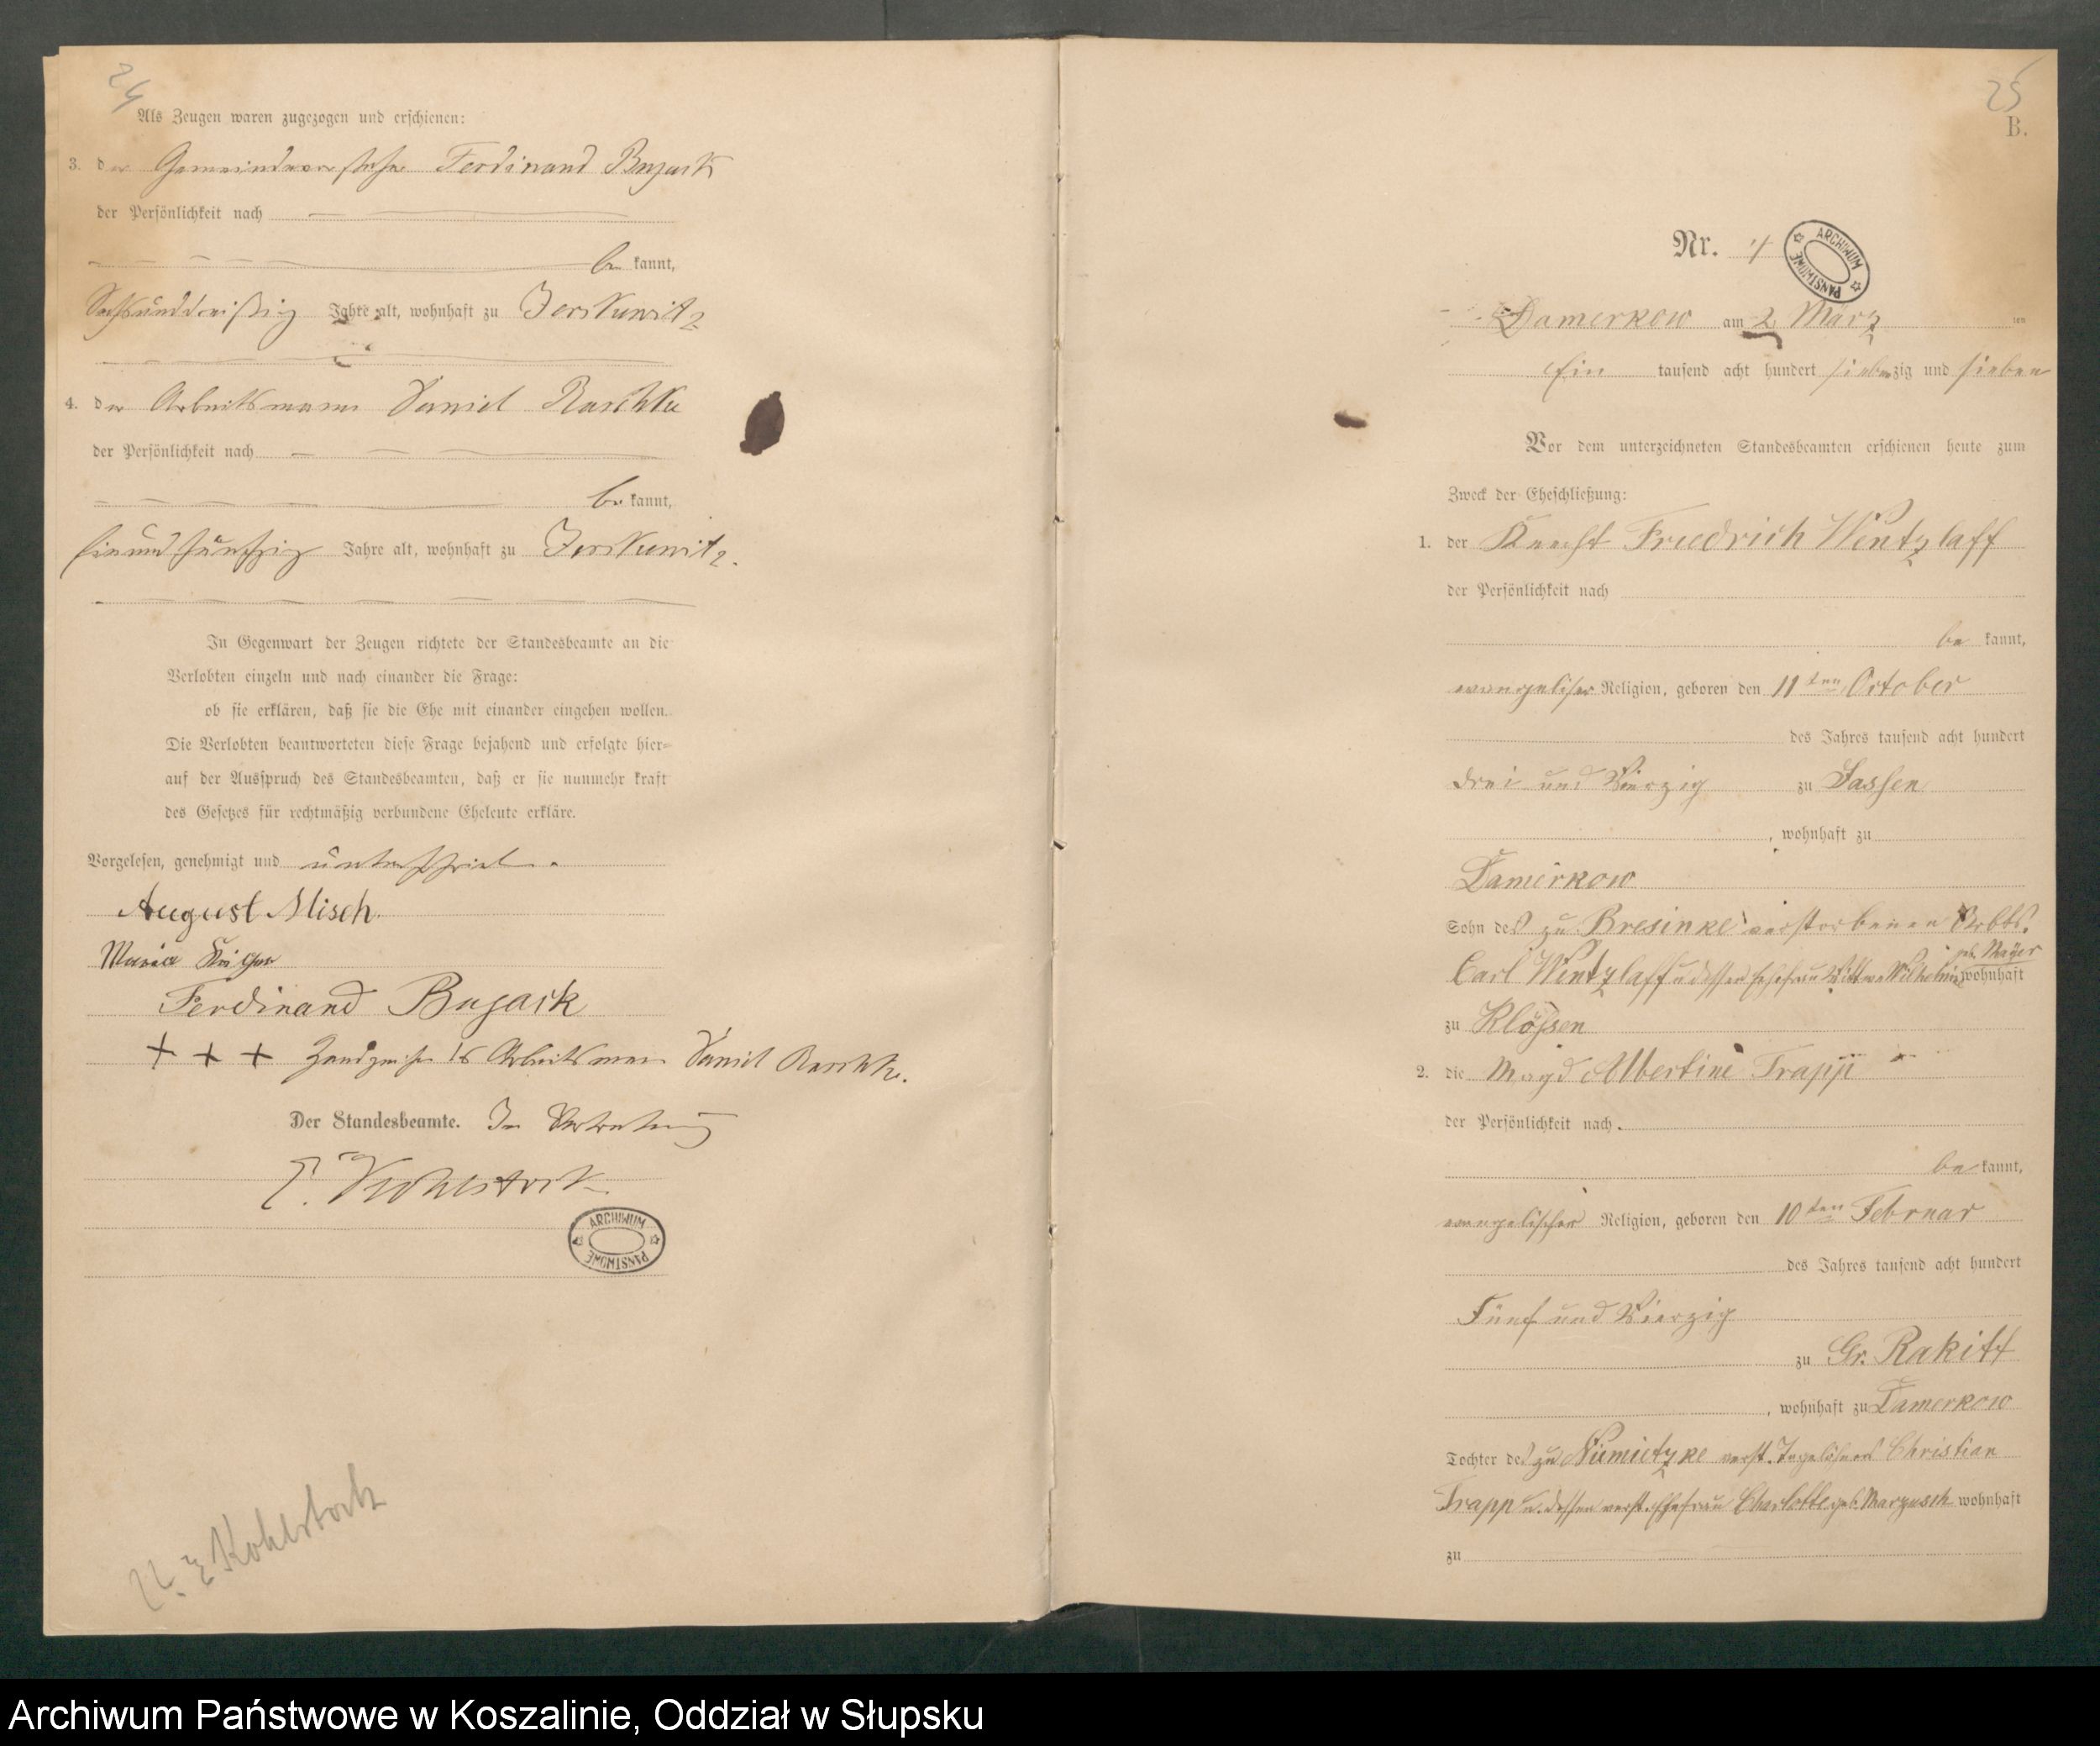 24
Als Zeugen waren zugezogen und erschienen:
3. der Gemeindevorsteher Ferdinand Bujack
der Persönlichkeit nach
be kannt,
Sechsunddreißig Jahre alt, wohnhaft zu Jerskewitz
4. der Arbeitsmann Daniel Raschke
der Persönlichkeit nach
be kannt,
Einundfünfzig Jahre alt, wohnhaft zu Jerskewitz.
In Gegenwart der Zeugen richtete der Standesbeamte an die
Verlobten einzeln und nach einander die Frage:
ob sie erklären, daß sie die Ehe mit einander eingehen wollen.
Die Verlobten beantworteten diese Frage bejahend und erfolgte hier-
auf der Ausspruch des Standesbeamten, daß er sie nunmehr kraft
des Gesetzes für rechtmäßig verbundene Eheleute erkläre.
Vorgelesen, genehmigt und unterschrieben
August Misch.
Maria
Ferdinand Bujack
+ + + Handzeichen des Arbeitsmann Daniel Raschke.
Der Standesbeamte. In Vertretung
E. Kohlstock
ARCHIWUM PAŃSTWOWE
Kohlstock
25
B.
Nr. 4
ARCHIWUM PAŃSTWOWE
Damerkow am 2 März ten
Ein tausend acht hundert siebenzig und sieben
Vor dem unterzeichneten Standesbeamten erschienen heute zum
Zweck der Eheschließung:
1. der Knecht Friedrich Wentzlaff
der Persönlichkeit nach
be kannt,
evangelischer Religion, geboren den 11ten October
des Jahres tausend acht hundert
drei und Vierzig zu Jassen
, wohnhaft zu
Damerkow
Sohn des zu Bresinke verstorbenen Arbts.
geb. Mayer
Carl Wentzlaff u dessen Ehefrau Wittwe Wilhelmine wohnhaft
zu Klössen
2. die Magd Albertine Trapp
der Persönlichkeit nach
be kannt,
evangelischer Religion, geboren den 10ten Februar
des Jahres tausend acht hundert
Fünf und Vierzig
zu Gr. Rakitt
, wohnhaft zu Damerkow
Tochter des zu Niemietzke verst. Tagelöhners Christian
Trapp u. dessen verst. Ehefrau Charlotte geb. Margusch wohnhaft
zu
Archiwum Państwowe w Koszalinie, Oddział w Słupsku